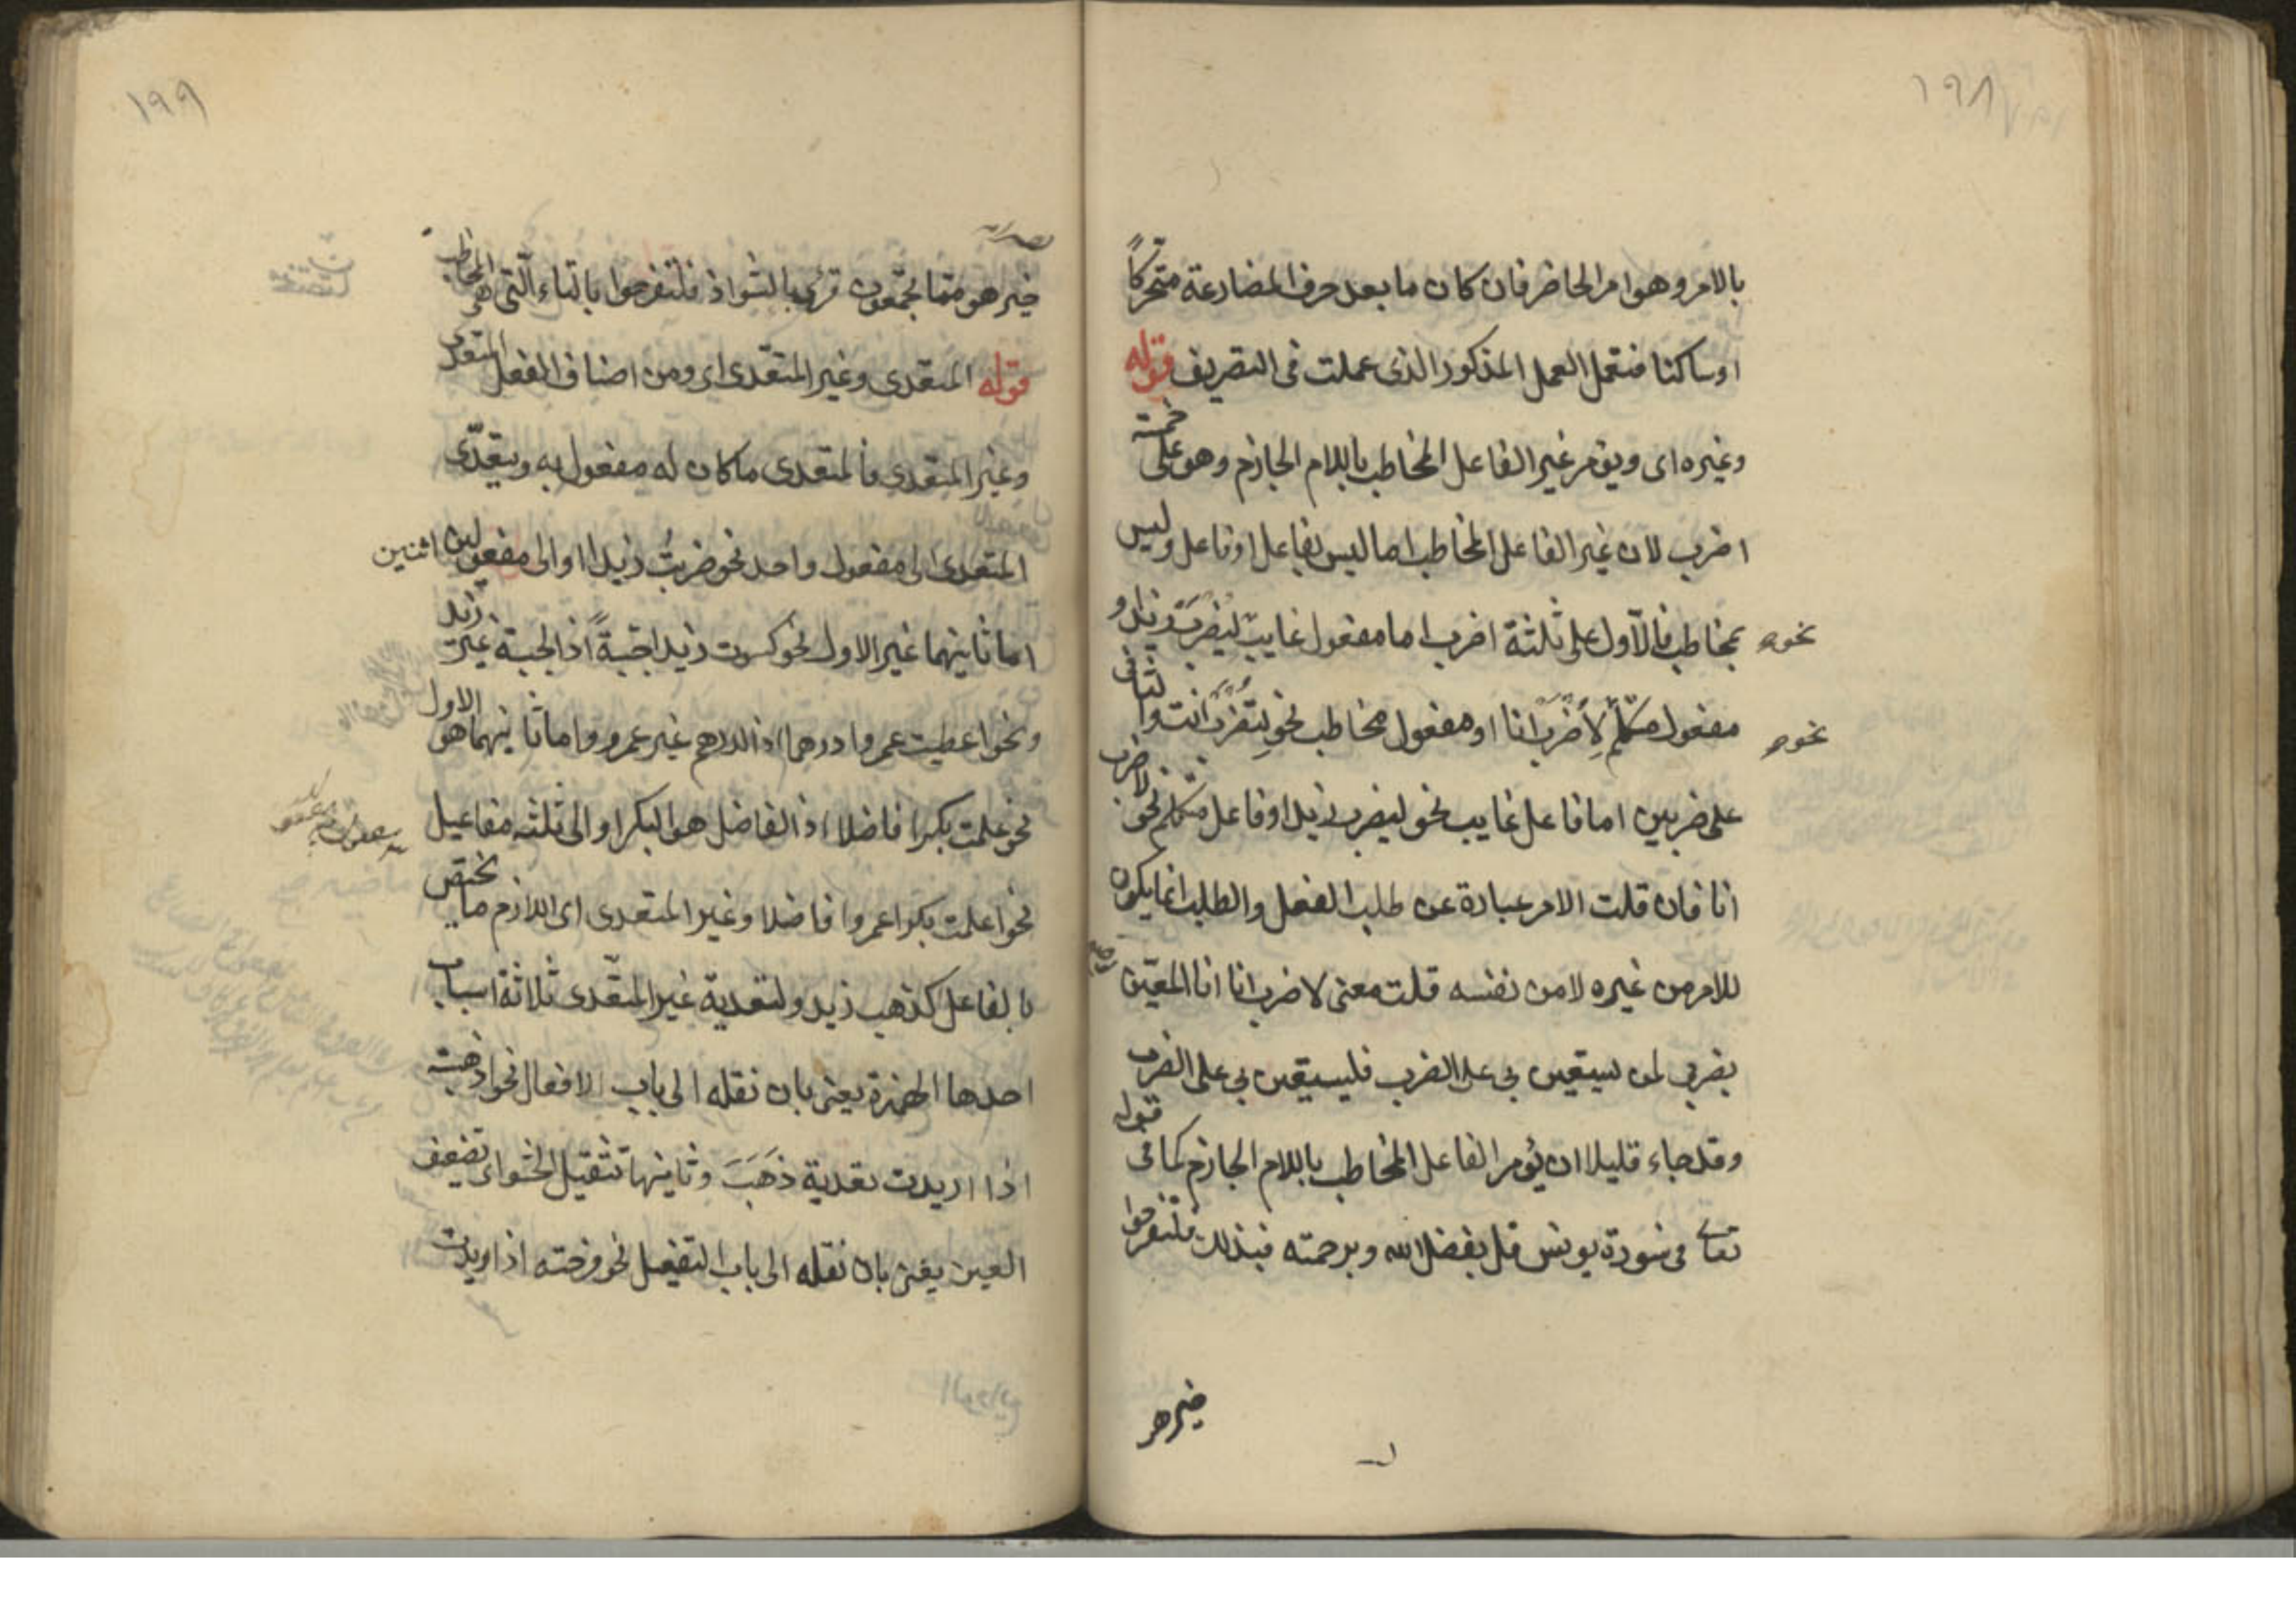 ١٩٨
بالامر وهو امر الحاضر فان كان ما بعد حرف المضارعة متحركًا
او ساكنا فتعمل العمل المذكور الذى عملت فى التصريف قوله
وغيره اى ويؤمر غير الفاعل المخاطب باللام الجازم وهو على خمسة
اضرب لان غير الفاعل المخاطب اما ليس بفاعل او فاعل وليس
بمخاطب فالاّول على ثلثة اضرب اما مفعول غايب ليُضرَبْ زيد او
نحو
مفعول متكلّم لِاُضْرَبْ انا او مفعول مخاطب نحو لِتُضْرَبْ انت والثانى
نحو
على ضربين اما فاعل غايب نحو ليضرب زيد او فاعل متكلم نحو لاضرب
انا فان قلت الامر عبارة عن طلب الفعل والطلب انما يكون
للامر من غيره لا من نفسه قلت معنى لاضرب انا انا المعيّن
بضربى لمن يستعين بى على الضرب فليستعين بى على الضرب
وقد جاء قليلا ان يؤمر الفاعل المخاطب باللام الجازم كما فى قوله
تعالى فى سورة يونس قل بفضل الله وبرحمته فبذلك فلتفرحوا
خير هو
١٩٩
خير هو ممّا تجمّعون قرئ بالشواذ فلتفرحوا بالتاء الّتى هى المخاطب
قوله المتعدى وغير المتعّدى اى ومن اصناف الفعل المتعدى
وغير المتعدى فالمتعدى ما كان له مفعول به ويتعدّى
المتعدى الى مفعول واحد نحو ضربتُ زيدا او الى مفعولين اثنين
اما ثانيهما غير الاول نحو كسوت زيدا جبّةً اذ الجبة غير زيد
ونحو اعطيت عمروا درهما اذ الدرهم غير عمرو واما ثانيهما هو الاول
نحو علمت بكرا فاضلا اذ الفاضل هو البكر او الى ثلثه مفاعيل
نحو اعلمت بكرا عمروا فاضلا وغير المتعدى اى اللازم ما يختص
بالفاعل كذهب زيد ولتعدية غير المتعّدى ثلاثة اسباب
احدها الهمزة يعنى بان نقله الى باب الافعال نحو اذهبته
اذا اريدت تعدية ذَهَبَ وثانيها تثقيل الحشو اى تضعيف
العين يعنى بان نقله الى باب التفعيل نحو فرحته اذا اريدت